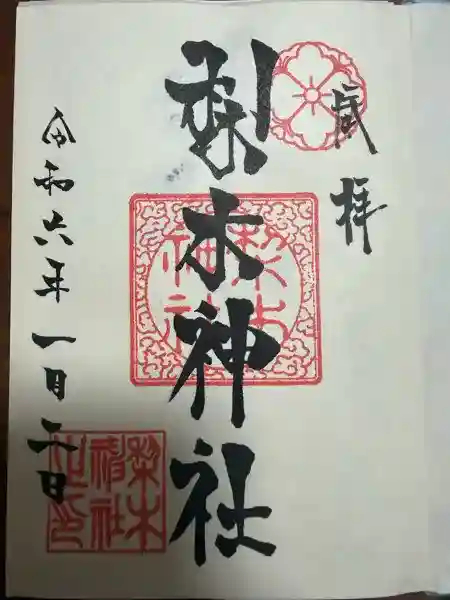 拝
梨木神社
梨木神社
令和六年一月二日
梨木神社之印